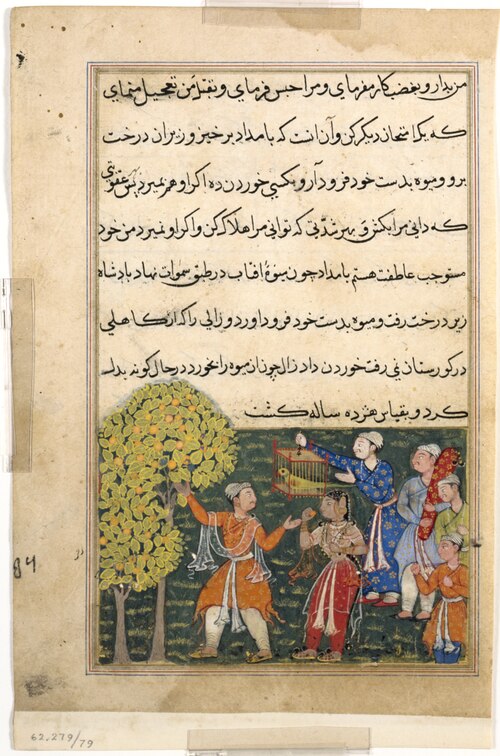 من بدار و بغضب کار مفرمای و مرا حبس فرمای و بقتل من تعجیل منمای
که یک امتحان دیگر کن و آن انست که بامداد برخیز و زیر ان درخت
برو و میوه بدست خود فرود آر و بکسی خوردن ده اکر او هم بمیرد پس عقوبتی
که دانی مرا بکش و بهر شدتی که توانی مرا هلاک کن و اکر او نمیرد من خود
مستوجب عاطفت هستم بامداد چون میوۀ افتاب در طبق سموات نهاد بادشاه
زیر درخت رفت و میوه بدست خود فرود اورد و زالی را که از کاهلی
در کورستان نمی رفت خوردن داد زال چون از میوه را بخورد در حال کونه بدل
کرد و بقیاس هژده ساله کشت
84
62.279/79